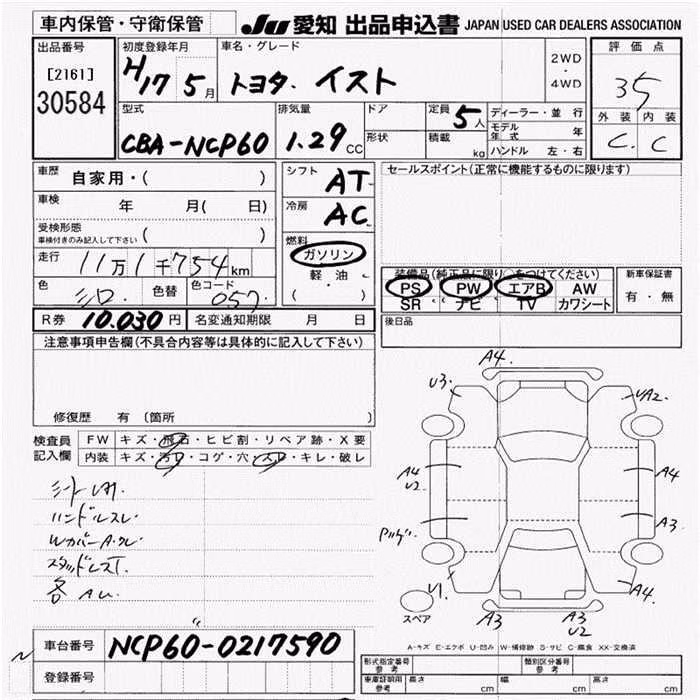 車内保管・守衛保管
JU 愛知 出品申込書 JAPAN USED CAR DEALERS ASSOCIATION
出品番号
[2161]
30584
初度登録年月
H17 5月
車名・グレード
トヨタ. イスト
2WD
・
4WD
評価点
35
外装 内装
C. C
型式
CBA-NCP60
排気量
1.29 CC
ドア
形状
定員 5人
積載 kg
ディーラー・並行
モデル年式 年
ハンドル 左・右
車歴 自家用・( )
車検 年 月( 日)
受検形態
車検付きのみ記入して下さい ( )
走行 11万1千754km
色 シロ. 色替 色コード 057.
シフト AT
冷房 AC
燃料
ガソリン
軽・油
( )
セールスポイント(正常に機能するものに限ります)
装備品(純正品に限り○をつけてください)
PS PW エアB AW
SR ナビ TV カワシート
新車保証書
有・無
R券 10.030円 名変通知期限 月 日
後日品
注意事項申告欄(不具合内容等は具体的に記入して下さい)
修復歴 有 〔箇所 〕
検査員
記入欄
FW キズ・飛石・ヒビ割・リペア跡・X要
内装 キズ・汚レ・コゲ・穴・スレ・キレ・破レ
ハンドルスレ
WカバーA.クレ
スタッドレスT.
各AU.
A4.
U3.
UA2.
A4
U2
A4
A3
U1
A4.
スペア
A3
A3
U2
A-キズ E-エクボ U-凹み W-補修跡 S-サビ C-腐食 XX-交換済
車台番号 NCP60-0217590
登録番号
形式指定番号
参考
類別区分番号
参考
車庫証明用
参考
長さ cm 幅 cm 高さ cm